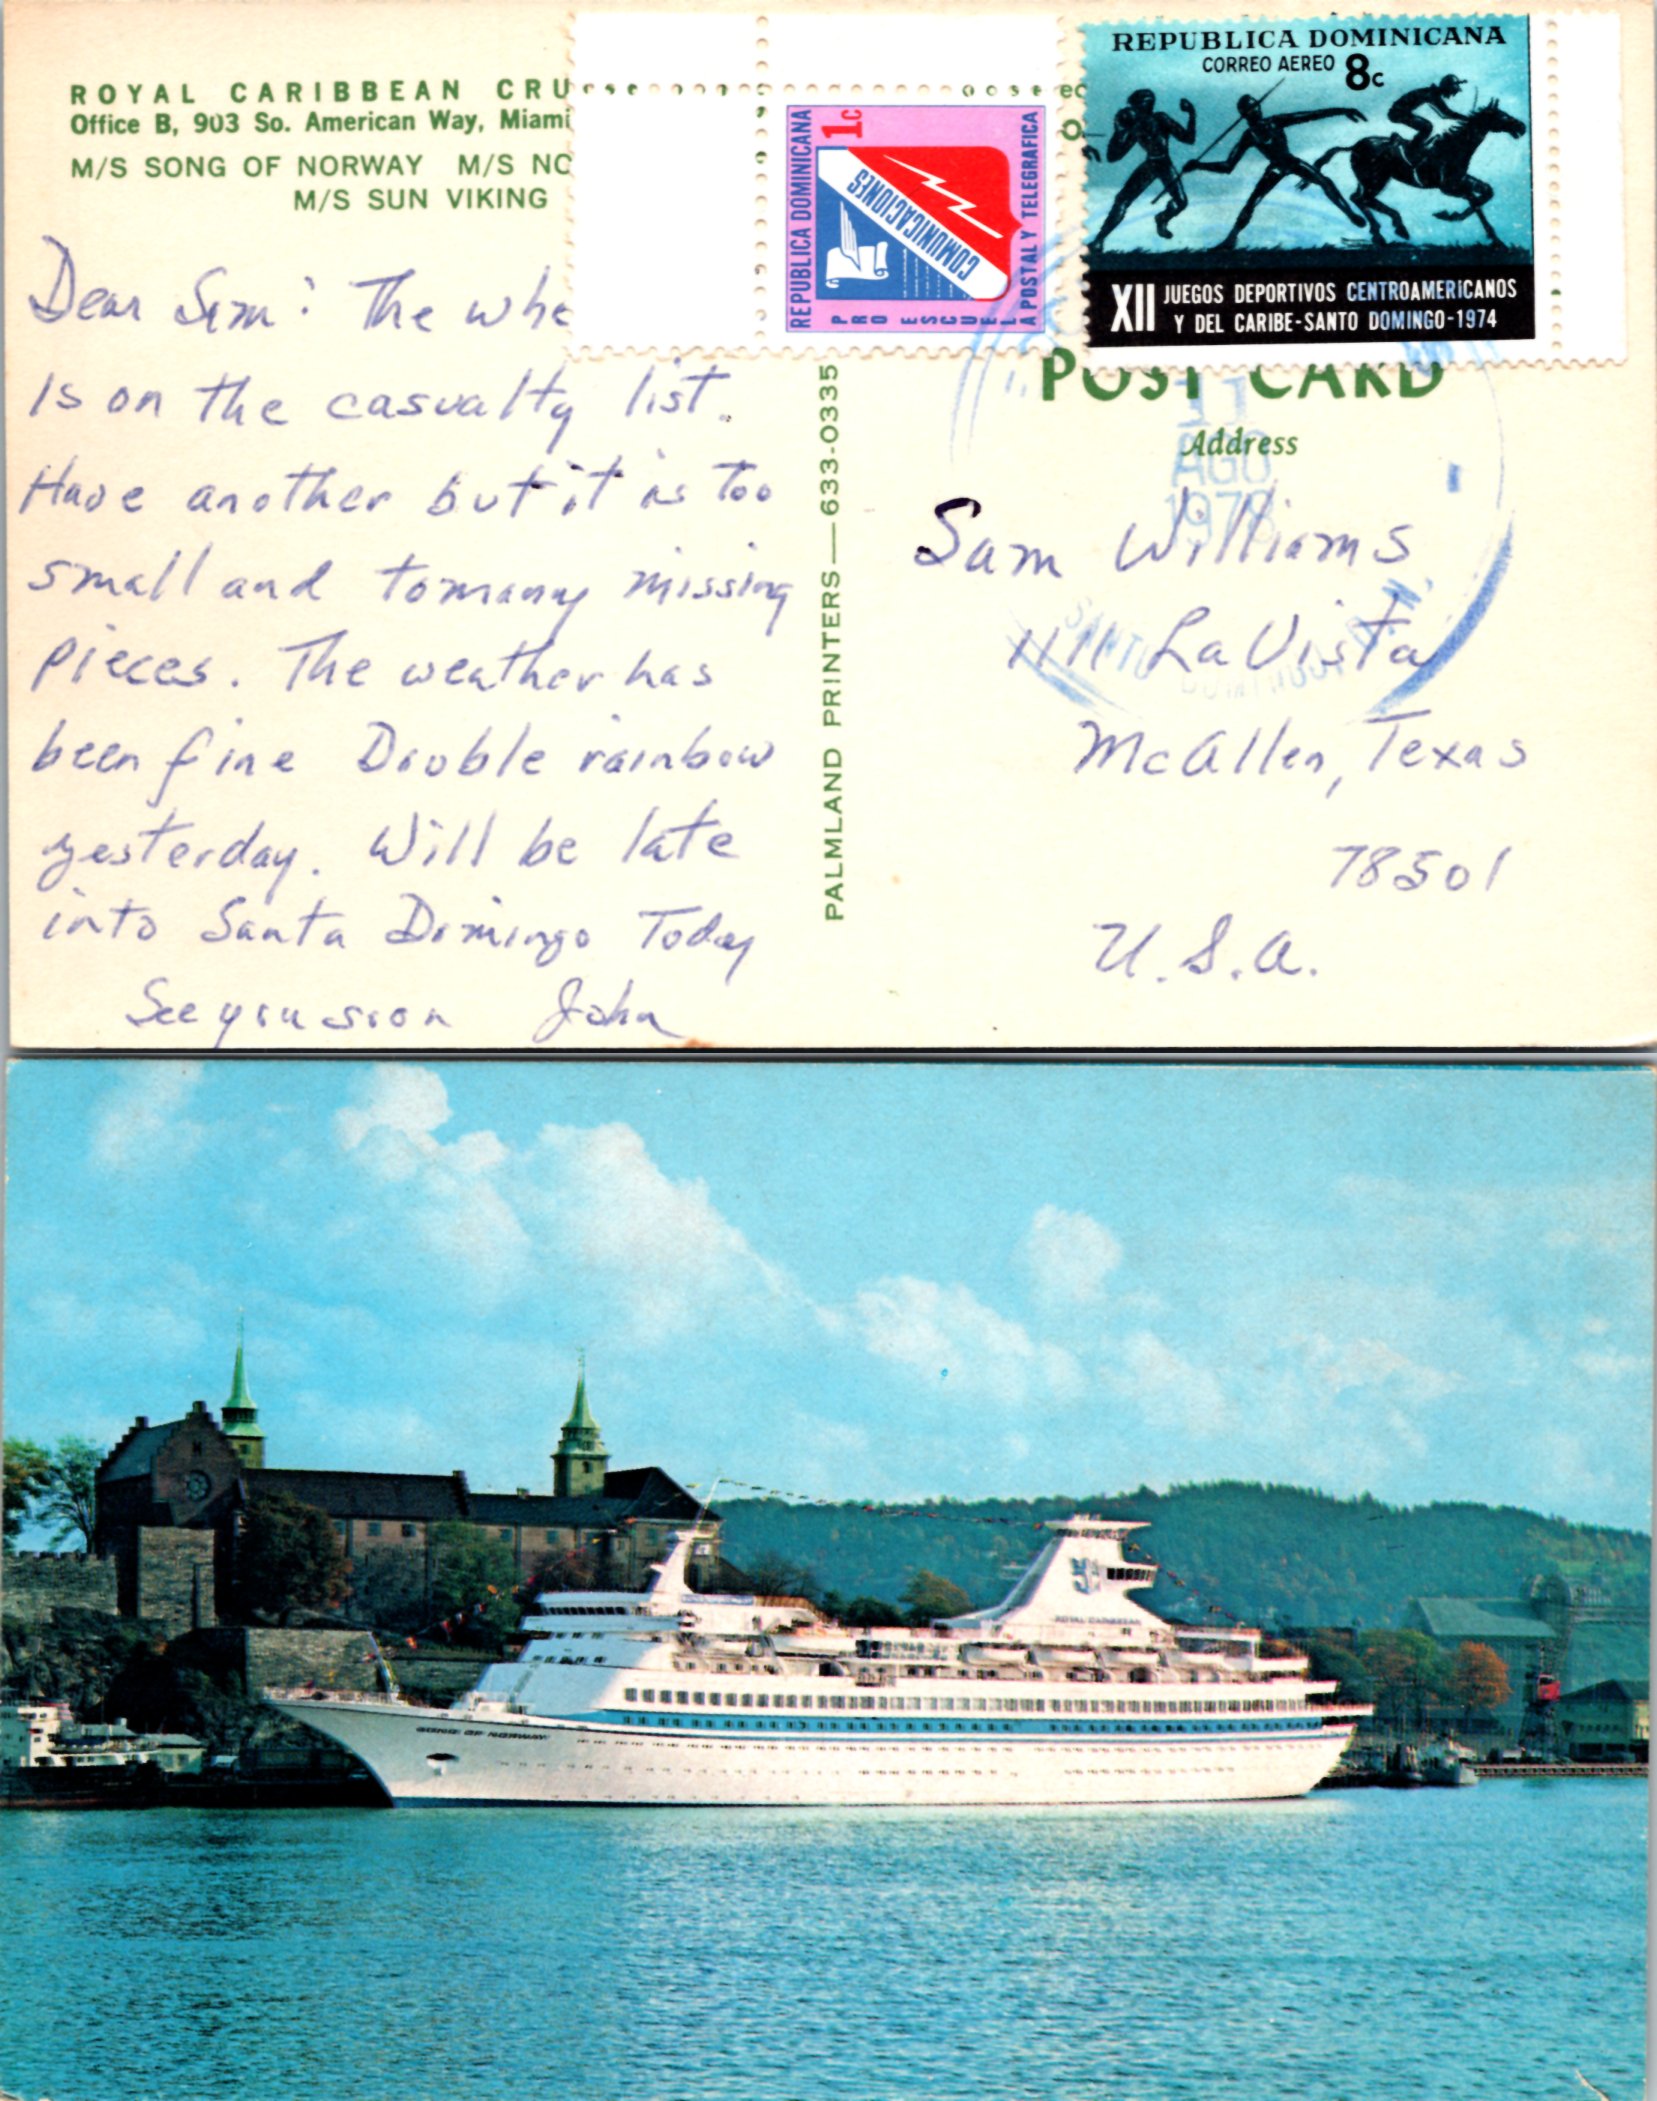 ROYAL CARIBBEAN CRU
Office B, 903 So. American Way, Miami
M/S SONG OF NORWAY M/S NO
M/S SUN VIKING
REPUBLICA DOMINICANA
1c
COMUNICACIONES
PRO ESCUELA POSTAL Y TELEGRAFICA
REPUBLICA DOMINICANA
CORREO AEREO 8c
XII JUEGOS DEPORTIVOS CENTROAMERICANOS
Y DEL CARIBE-SANTO DOMINGO-1974
Dear Sam: The whe
is on the casualty list.
Have another but it is too
small and tomany missing
pieces. The weather has
been fine Double rainbow
yesterday. Will be late
into Santa Domingo Today
See you soon John
PALMLAND PRINTERS—633-0335
POST CARD
Address
11
AGO
1978
SANTO DOMINGO, R. N.
Sam Williams
1111 La Vista
McAllen, Texas
78501
U.S.A.
ROYAL CARIBBEAN
SONG OF NORWAY